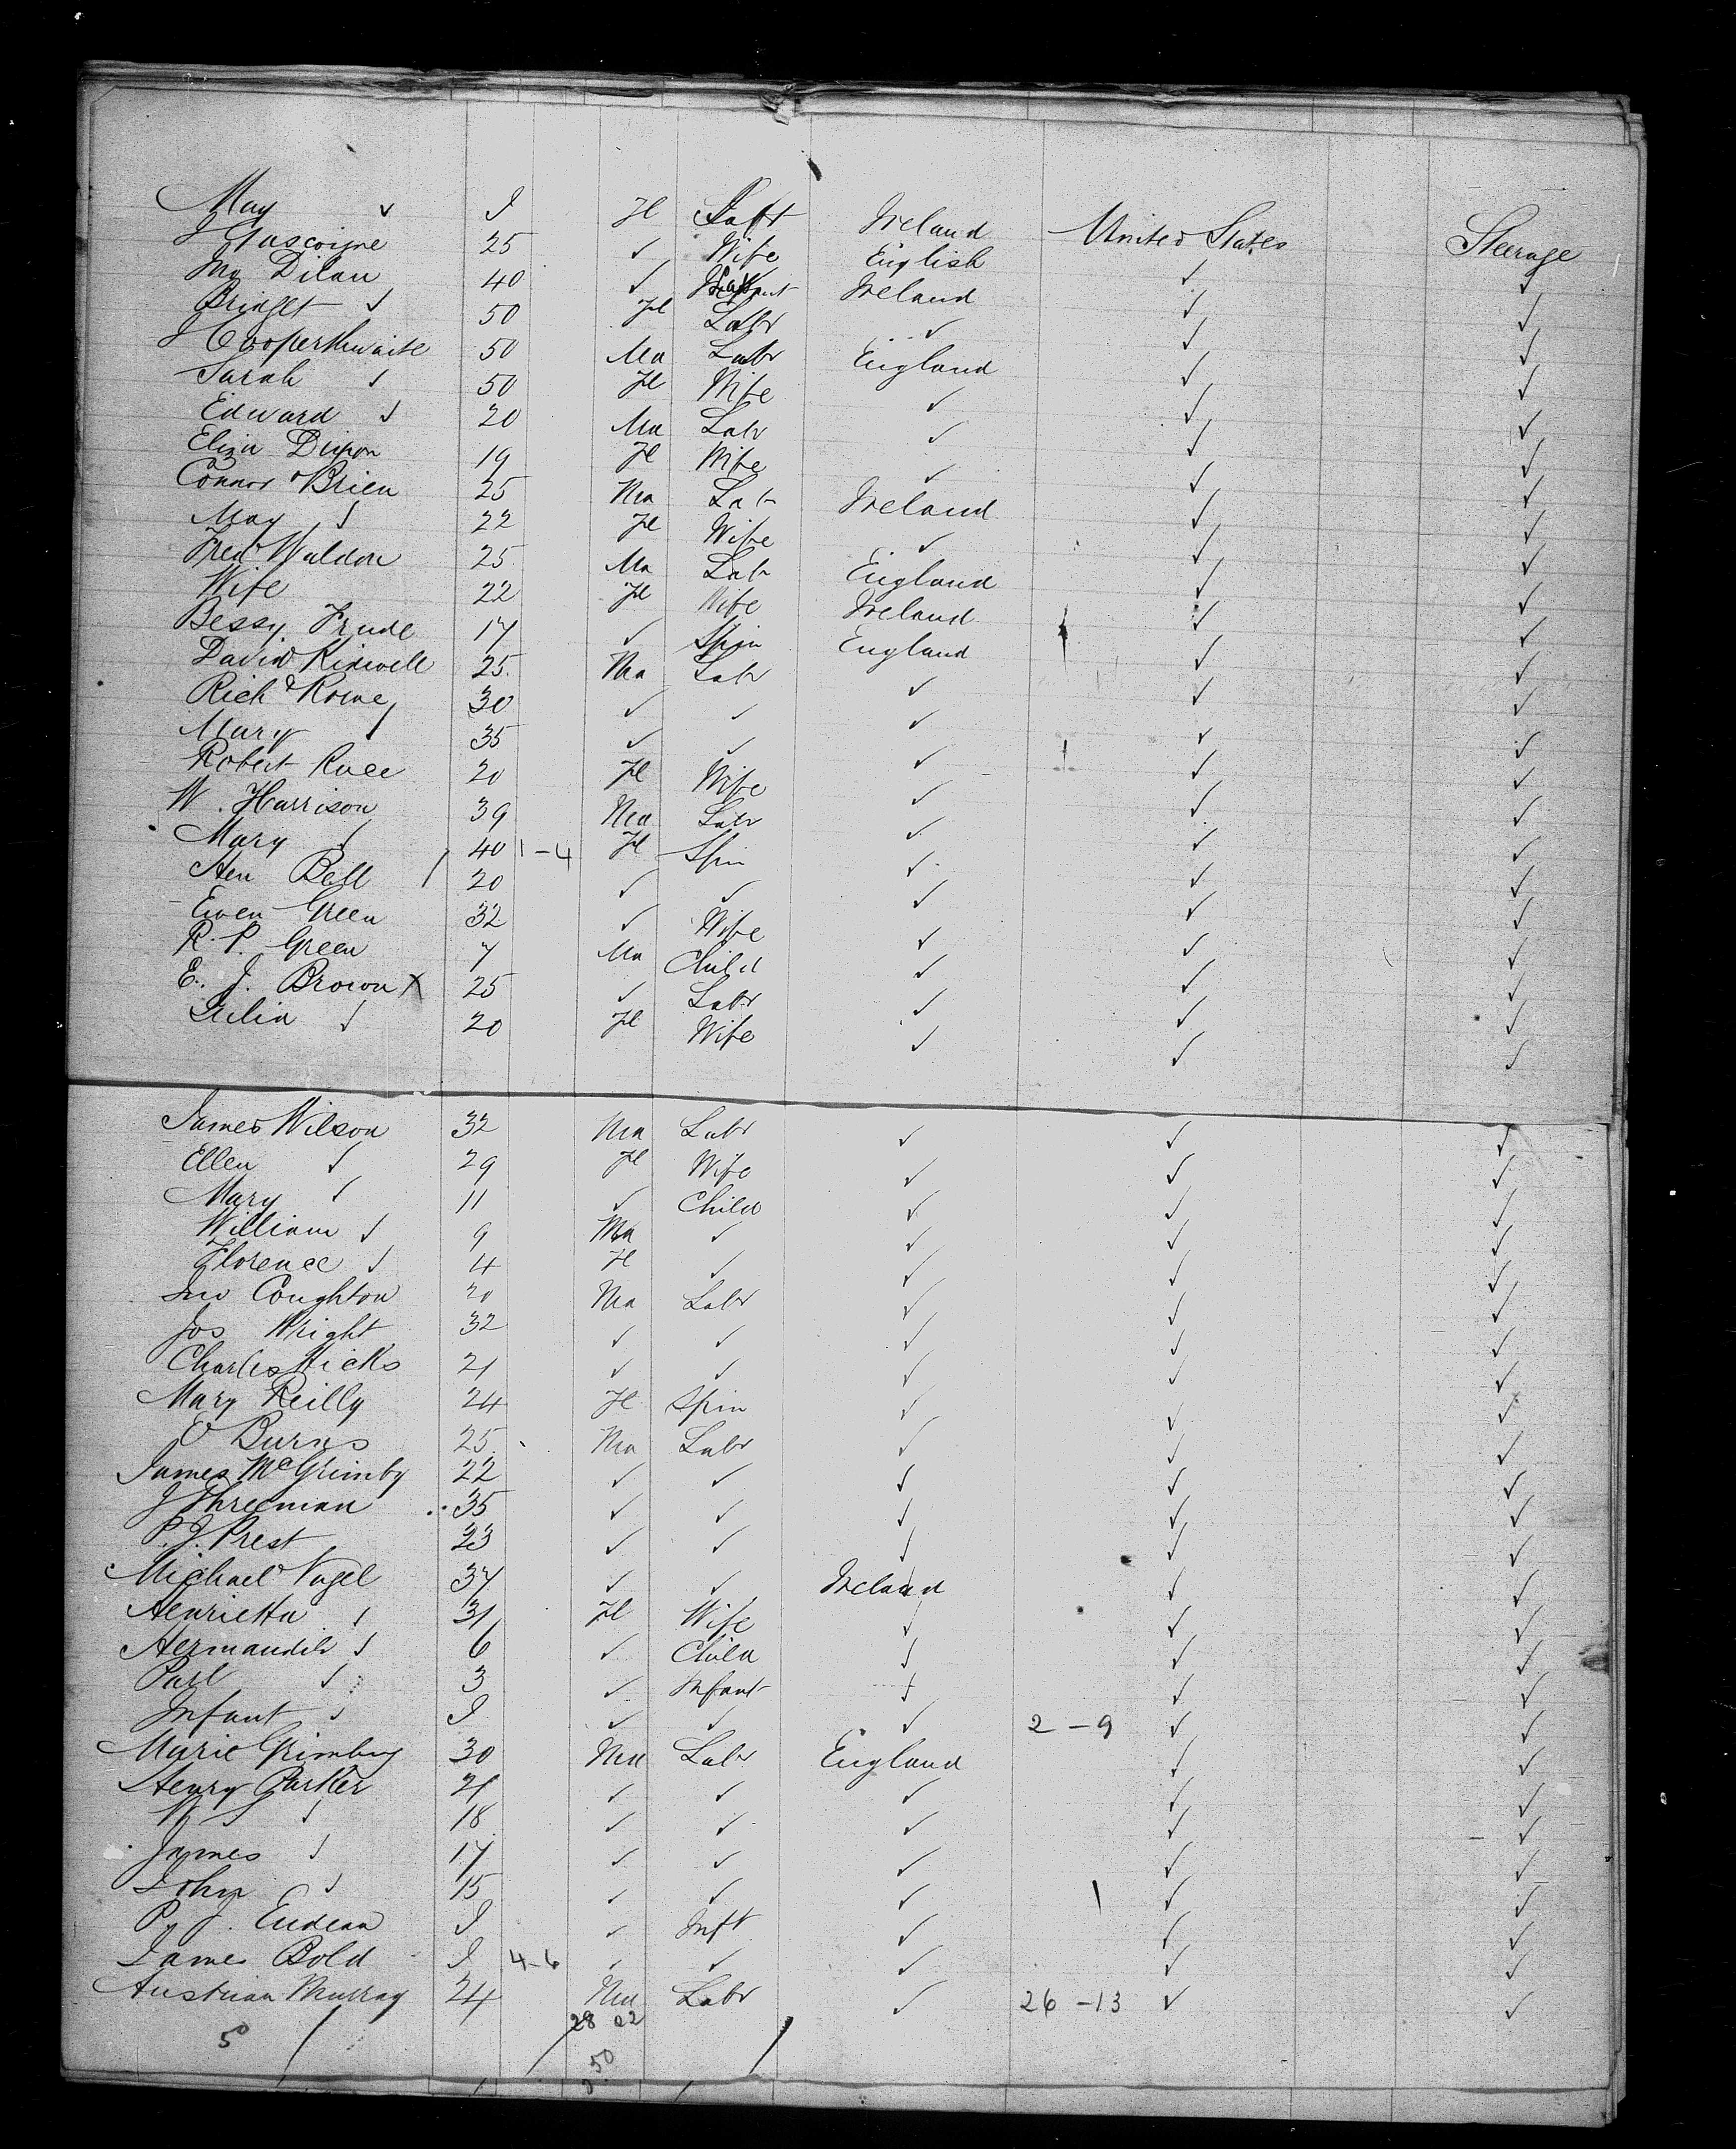 May ✓ I Fl Inft Ireland United States Steerage
J Gascoigne 25 ✓ Wife English ✓ ✓
My Dilan 40 ✓ Ireland ✓ ✓
Bridget ✓ 50 Fl Labr ✓ ✓ ✓
J Cooperthwaite 50 Ma Labr England ✓ ✓
Sarah ✓ 50 Fl Wife ✓ ✓ ✓
Edward ✓ 20 Ma Labr ✓ ✓ ✓
Eliza Dixon 19 Fl Wife ✓ ✓ ✓
Connor OBrien 25 Ma Labr Ireland ✓ ✓
May ✓ 22 Fl Wife ✓ ✓ ✓
Fredk Waldon 25 Ma Labr England ✓ ✓
Wife 22 Fl Wife Ireland ✓ ✓
Bessy Frude 17 ✓ Spin England ✓ ✓
David Kidwell 25 Ma Labr ✓ ✓ ✓
Richd Rowe 30 ✓ ✓ ✓ ✓ ✓
Mary ✓ 35 ✓ ✓ ✓ ✓ ✓
Robert 20 Fl Wife ✓ ✓ ✓
W. Harrison 39 Ma Labr ✓ ✓ ✓
Mary ✓ 40 1-4 Fl Spin ✓ ✓ ✓
Hen Bell 20 ✓ ✓ ✓ ✓ ✓
Ewen Green 32 ✓ Wife ✓ ✓ ✓
R. P. Green 7 Ma Child ✓ ✓ ✓
E. J. Brown X 25 ✓ Labr ✓ ✓ ✓
Julia ✓ 20 Fl Wife ✓ ✓ ✓
James Wilson 32 Ma Labr ✓ ✓ ✓
Ellen ✓ 29 Fl Wife ✓ ✓ ✓
Mary ✓ 11 ✓ Child ✓ ✓ ✓
William ✓ 9 Ma ✓ ✓ ✓ ✓
Florence ✓ 4 Fl ✓ ✓ ✓ ✓
Jno Coughton 20 Ma Labr ✓ ✓ ✓
Jos Wright 32 ✓ ✓ ✓ ✓ ✓
Charles Hicks 21 ✓ ✓ ✓ ✓ ✓
Mary Reilly 24 Fl Spin ✓ ✓ ✓
O Burns 25 Ma Labr ✓ ✓ ✓
James McGrimby 22 ✓ ✓ ✓ ✓ ✓
J Threeman 35 ✓ ✓ ✓ ✓ ✓
P. J. Prest 23 ✓ ✓ ✓ ✓ ✓
Michael Nagel 37 ✓ ✓ Ireland ✓ ✓
Henrietta ✓ 31 Fl Wife ✓ ✓ ✓
✓ 6 ✓ Child ✓ ✓ ✓
Paul ✓ 3 ✓ Infant ✓ ✓ ✓
Infant ✓ I ✓ ✓ ✓ 2-9 ✓ ✓
Marie Grimbuy 30 Ma Labr England ✓ ✓
Henry Parker 21 ✓ ✓ ✓ ✓ ✓
W S ✓ 18 ✓ ✓ ✓ ✓ ✓
James ✓ 17 ✓ ✓ ✓ ✓ ✓
John ✓ 15 ✓ ✓ ✓ ✓ ✓
P. J. Endean I ✓ Inft ✓ ✓ ✓
James Bold I 4-6 ✓ ✓ ✓ ✓ ✓
Murray 24 Ma Labr ✓ 26-13 ✓ ✓
28 22
5 50